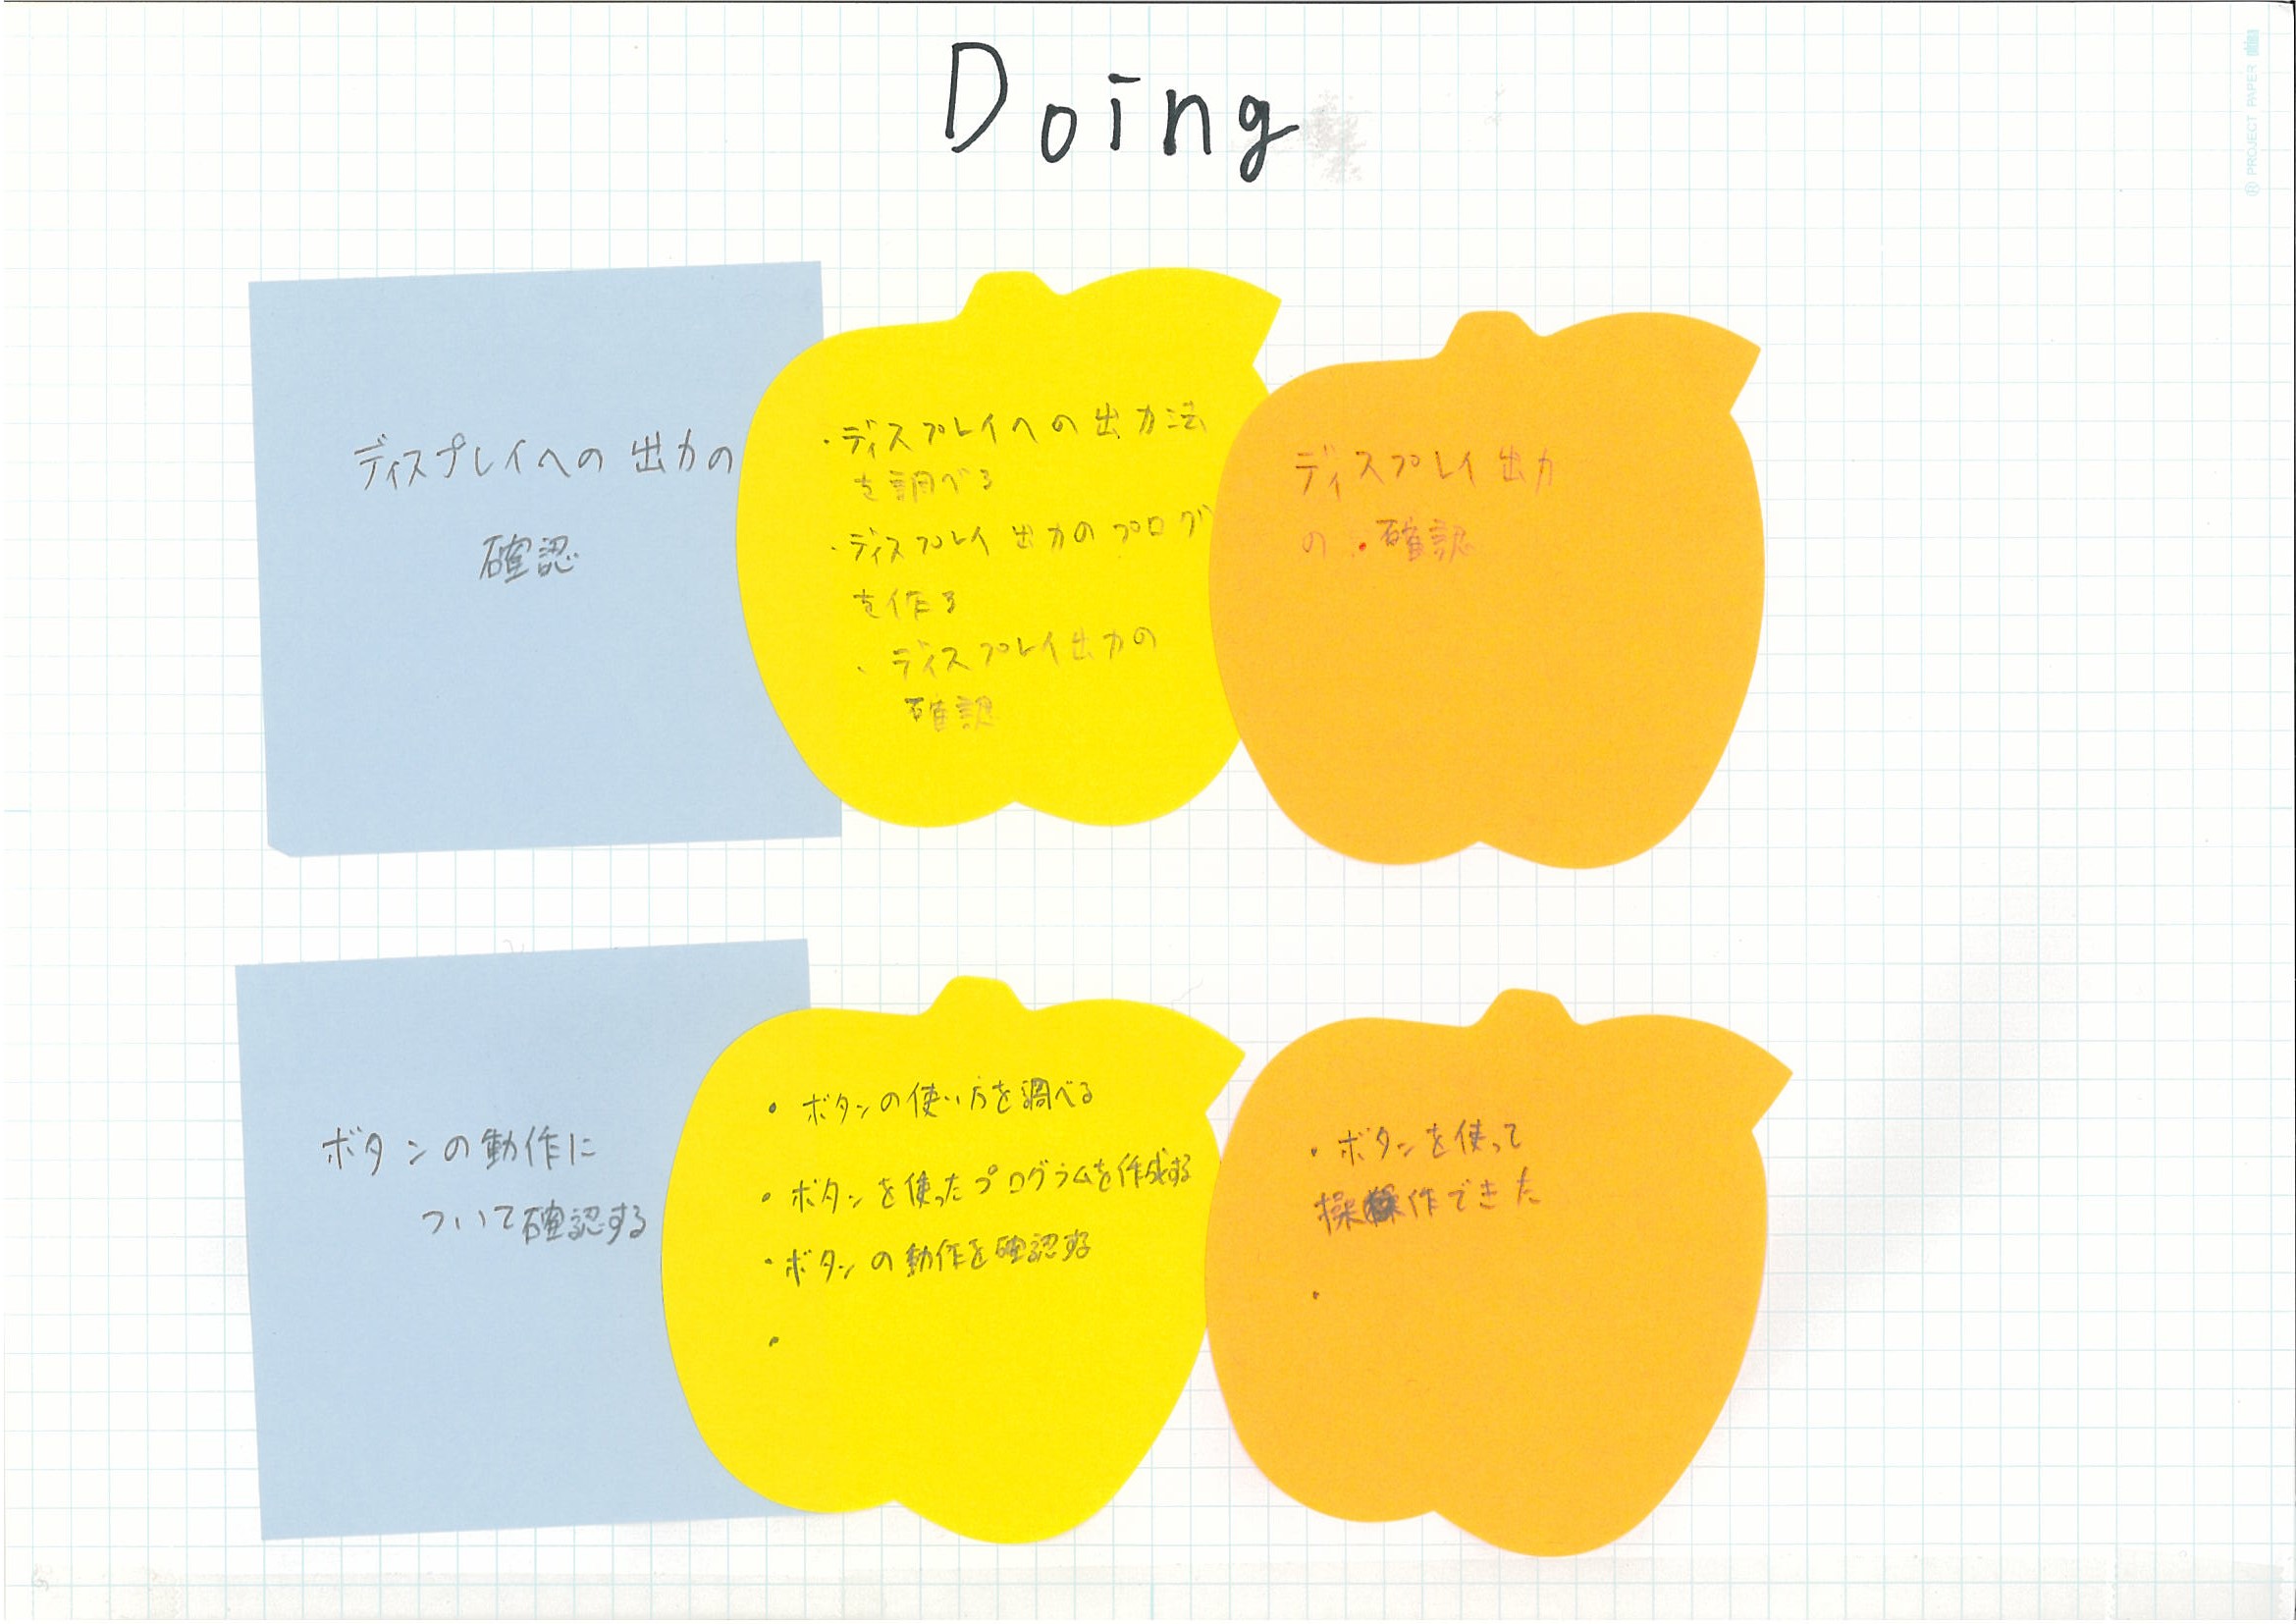 Doing
® PROJECT PAPER
ディスプレイへの出力の
確認
・ディスプレイへの出力法
を調べる
・ディスプレイ出力のプログ
を作る
・ディスプレイ出力の
確認
ディスプレイ出力
の・確認
ボタンの動作に
ついて確認する
・ボタンの使い方を調べる
・ボタンを使ったプログラムを作成する
・ボタンの動作を確認する
・
・ボタンを使って
操作できた
・